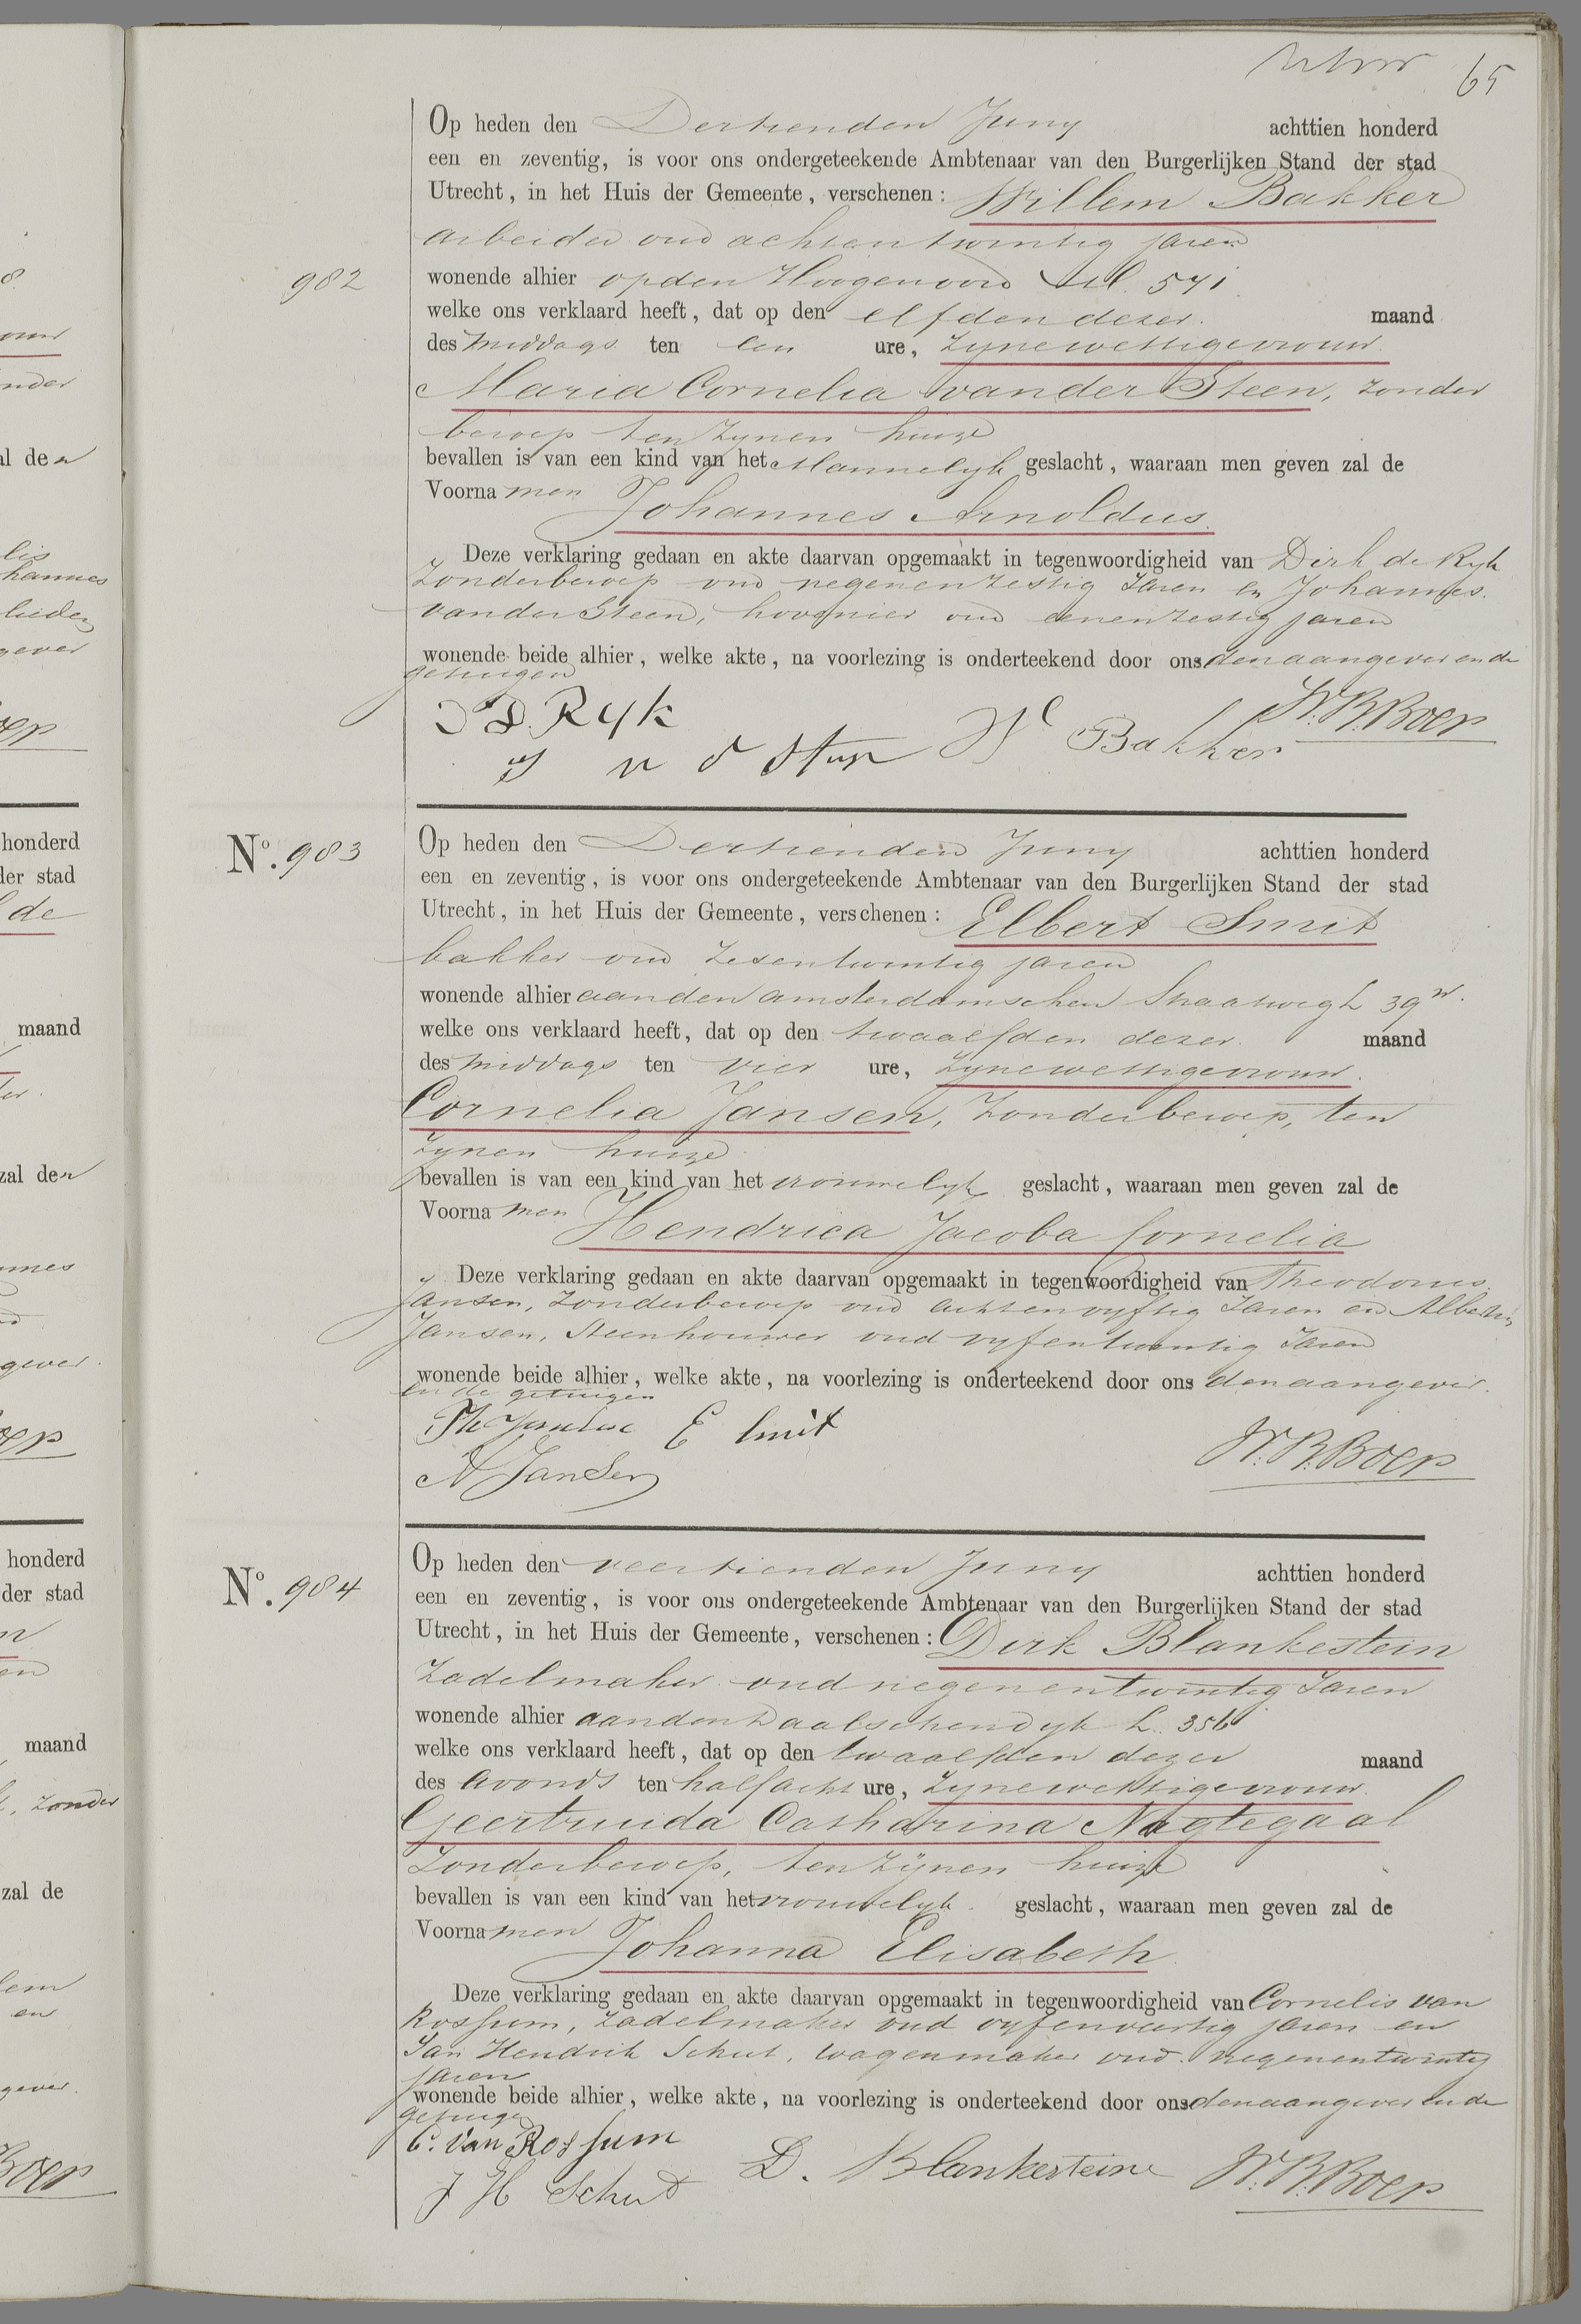 65
982
Op heden den Dertienden Juny achttien honderd
een en zeventig, is voor ons ondergeteekende Ambtenaar van den Burgerlijken Stand der stad
Utrecht, in het Huis der Gemeente, verschenen: Willem Bakker
arbeider oud achtentwintig jaren
wonende alhier op den Hoogenoord 571
welke ons verklaard heeft, dat op den elfden dezer. maand
des middags ten een ure, zyne wettige vrouw
Maria Cornelia van der Steen, zonder
beroep ten zynen huize
bevallen is van een kind van het Mannelyk geslacht, waaraan men geven zal de
Voornamen Johannes Arnoldus.
Deze verklaring gedaan en akte daarvan opgemaakt in tegenwoordigheid van Dirk de Ryk
zonder beroep oud negenenzestig Jaren en Johannes
van der Steen, hovenier oud eenenzestig jaren
wonende beide alhier, welke akte, na voorlezing is onderteekend door ons den aangever en de
getuigen
D. Ryk
W. B. Boer
W Bakker
No. 983
Op heden den Dertienden Juny achttien honderd
een en zeventig, is voor ons ondergeteekende Ambtenaar van den Burgerlijken Stand der stad
Utrecht, in het Huis der Gemeente, verschenen: Elbert Smit
bakker oud zesentwintig jaren
wonende alhier aan den amsterdamschen Straatweg L 39
welke ons verklaard heeft, dat op den twaalfden dezer. maand
des middags ten vier ure, zyne wettige vrouw.
Cornelia Jansen, zonder beroep, ten
zynen huize
bevallen is van een kind van het vrouwelyk geslacht, waaraan men geven zal de
Voornamen Hendrica Jacoba Cornelia
Deze verklaring gedaan en akte daarvan opgemaakt in tegenwoordigheid van Theodorus
Jansen, zonder beroep oud achtenvyftig Jaren en Albertus
Jansen, Steenhouwer oud vyfentwintig Jaren
wonende beide alhier, welke akte, na voorlezing is onderteekend door ons den aangever.
en de getuigen
Th Jansen E Smit
A Jansen
W. B. Boer
No. 984
Op heden den veertienden Juny achttien honderd
een en zeventig, is voor ons ondergeteekende Ambtenaar van den Burgerlijken Stand der stad
Utrecht, in het Huis der Gemeente, verschenen: Dirk Blankestein
zadelmaker oud negenentwintig Jaren
wonende alhier aan den Daalschendyk L. 356
welke ons verklaard heeft, dat op den twaalfden dezer maand
des avonds ten half acht ure, zyne wettige vrouw
Geertruida Catharina Nagtegaal
zonder beroep, ten zynen huize
bevallen is van een kind van het vrouwelyk geslacht, waaraan men geven zal de
Voornamen Johanna Elisabeth
Deze verklaring gedaan en akte daarvan opgemaakt in tegenwoordigheid van Cornelis van
Rossum, zadelmaker oud vyfenveertig jaren en
Jan Hendrik Schut, wagenmaker oud negenentwintig
jaren
wonende beide alhier, welke akte, na voorlezing is onderteekend door ons den aangever en de
getuigen
C. van Rossum
D. Blankestein W. B. Boer
J H Schut